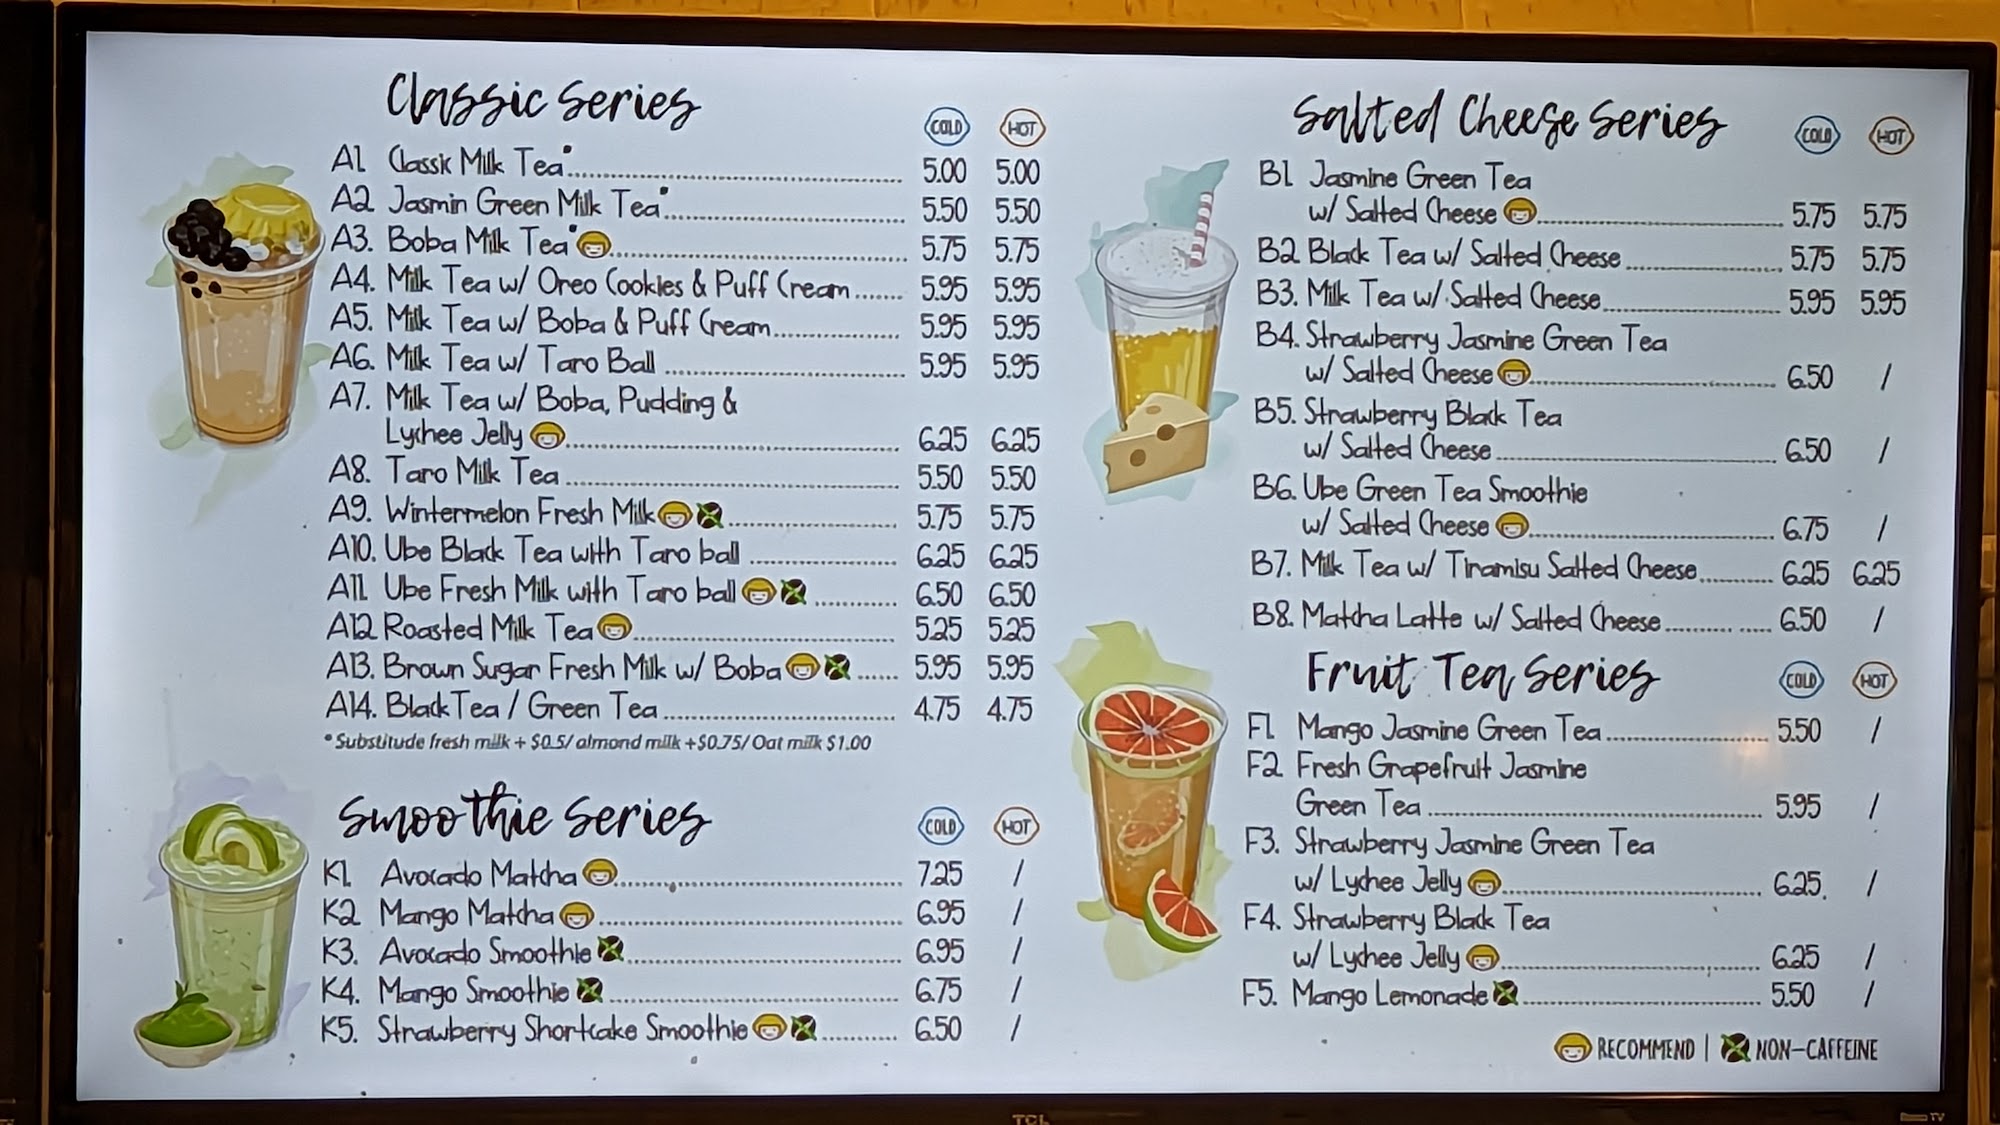 Classic Series
COLD HOT
A1. Classic Milk Tea* 5.00 5.00
A2. Jasmin Green Milk Tea* 5.50 5.50
A3. Boba Milk Tea* 5.75 5.75
A4. Milk Tea w/ Oreo Cookies & Puff Cream 5.95 5.95
A5. Milk Tea w/ Boba & Puff Cream 5.95 5.95
A6. Milk Tea w/ Taro Ball 5.95 5.95
A7. Milk Tea w/ Boba, Pudding &
Lychee Jelly 6.25 6.25
A8. Taro Milk Tea 5.50 5.50
A9. Wintermelon Fresh Milk 5.75 5.75
A10. Ube Black Tea with Taro ball 6.25 6.25
A11. Ube Fresh Milk with Taro ball 6.50 6.50
A12. Roasted Milk Tea 5.25 5.25
A13. Brown Sugar Fresh Milk w/ Boba 5.95 5.95
A14. Black Tea / Green Tea 4.75 4.75
*Substitude fresh milk + $0.5/ almond milk +$0.75/ Oat milk $1.00
Smoothie Series
COLD HOT
K1. Avocado Matcha 7.25 /
K2. Mango Matcha 6.95 /
K3. Avocado Smoothie 6.95 /
K4. Mango Smoothie 6.75 /
K5. Strawberry Shortcake Smoothie 6.50 /
Salted Cheese Series
COLD HOT
B1. Jasmine Green Tea
w/ Salted Cheese 5.75 5.75
B2. Black Tea w/ Salted Cheese 5.75 5.75
B3. Milk Tea w/ Salted Cheese 5.95 5.95
B4. Strawberry Jasmine Green Tea
w/ Salted Cheese 6.50 /
B5. Strawberry Black Tea
w/ Salted Cheese 6.50 /
B6. Ube Green Tea Smoothie
w/ Salted Cheese 6.75 /
B7. Milk Tea w/ Tiramisu Salted Cheese 6.25 6.25
B8. Matcha Latte w/ Salted Cheese 6.50 /
Fruit Tea Series
COLD HOT
F1. Mango Jasmine Green Tea 5.50 /
F2. Fresh Grapefruit Jasmine
Green Tea 5.95 /
F3. Strawberry Jasmine Green Tea
w/ Lychee Jelly 6.25 /
F4. Strawberry Black Tea
w/ Lychee Jelly 6.25 /
F5. Mango Lemonade 5.50 /
RECOMMEND | NON-CAFFEINE
TCL
TV